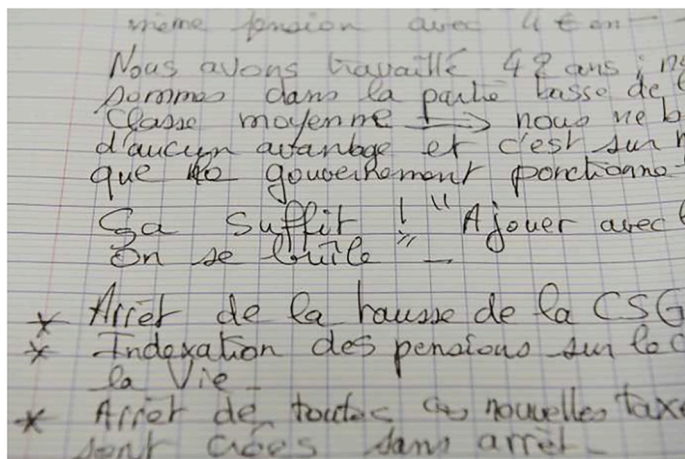 même pension avec
Nous avons travaillé 42 ans ; no
sommes dans la partie basse de
Classe moyenne => nous ne b
d'aucun avantage et c'est sur n
que le gouvernement ponctionne
Ca suffit ! " A jouer avec
on se brûle " _
* Arrêt de la hausse de la CSG
* Indexation des pensions sur le c
la Vie _
* Arrêt de toutes ces nouvelles taxe
sont crées sans arrêt _